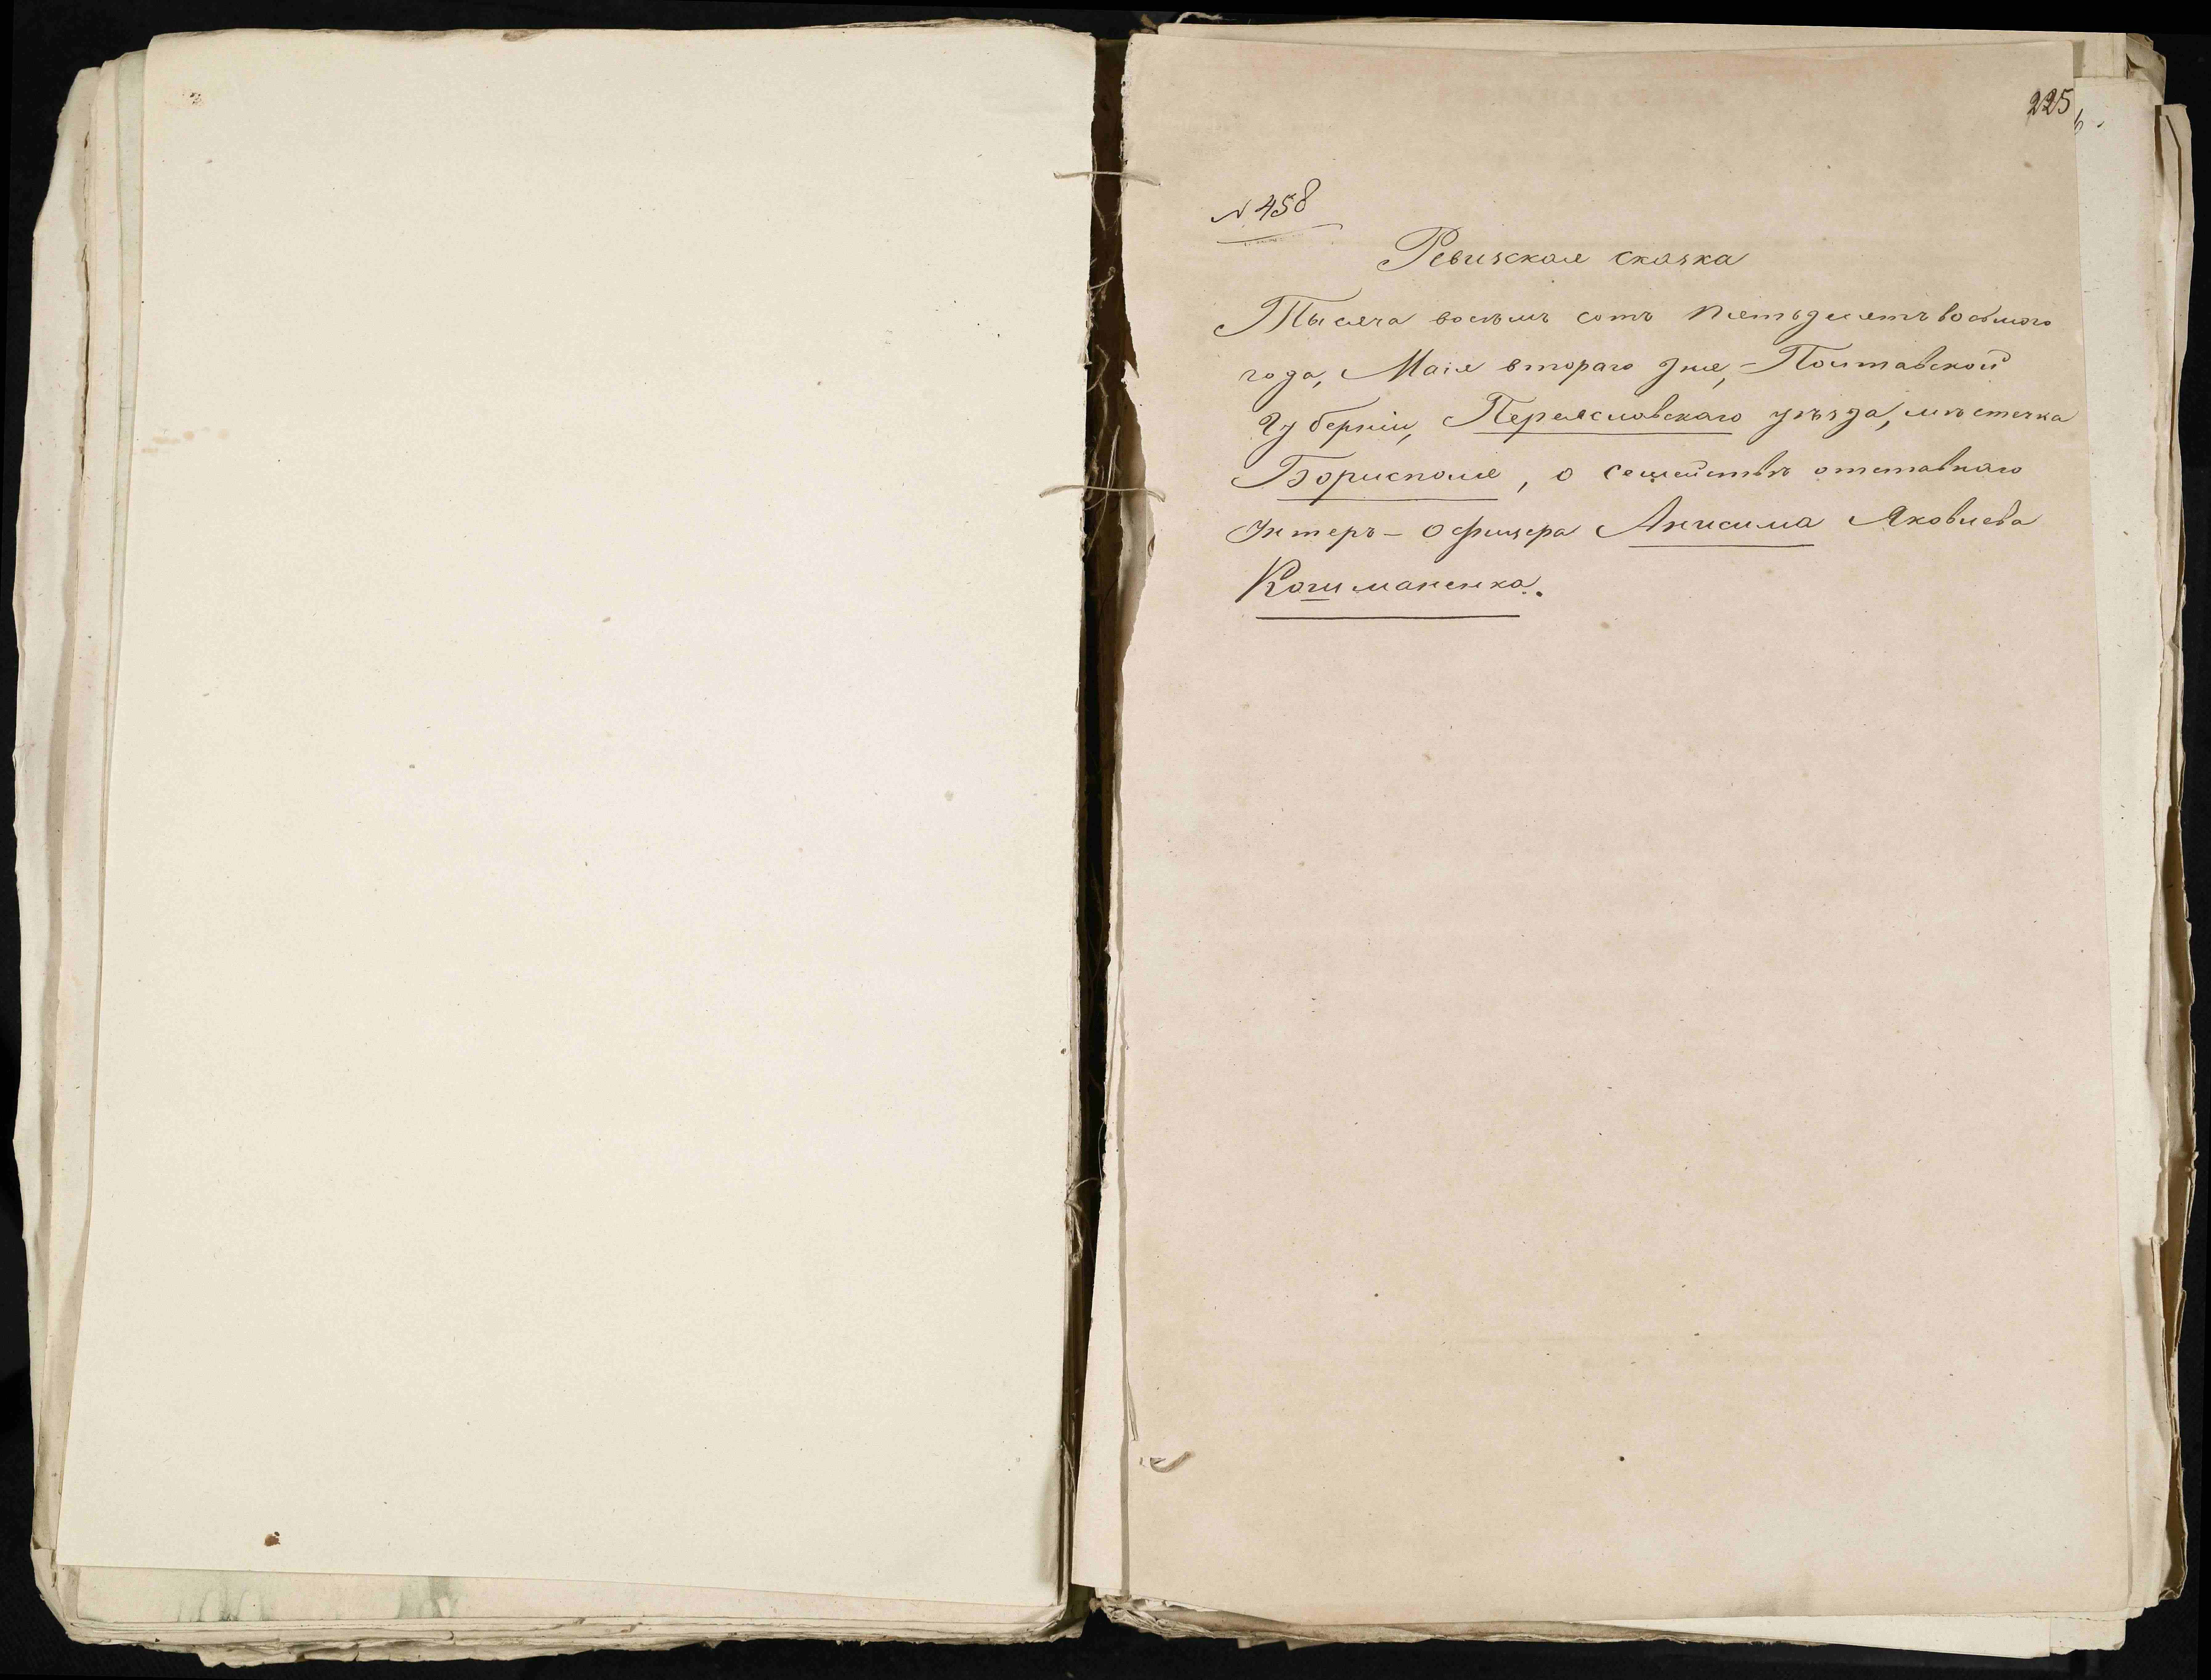 225
N 458
Ревизская сказка
Тысяча восѣмъ сотъ пятьдесятъ восьмого
года, Маія втораго дня, - Полтавской
Губерніи, Переясловскаго уѣзда, мѣстечка
Борисполя, о семействѣ отставнаго
Унтеръ - Офицера Анисима Яковлева